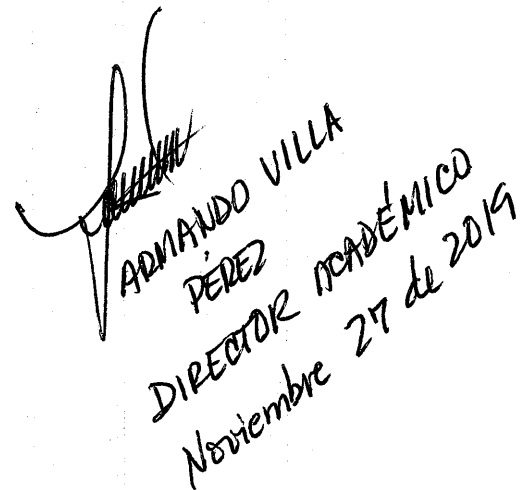 ARMANDO VILLA
PÉREZ
DIRECTOR ACADÉMICO
Noviembre 27 de 2019